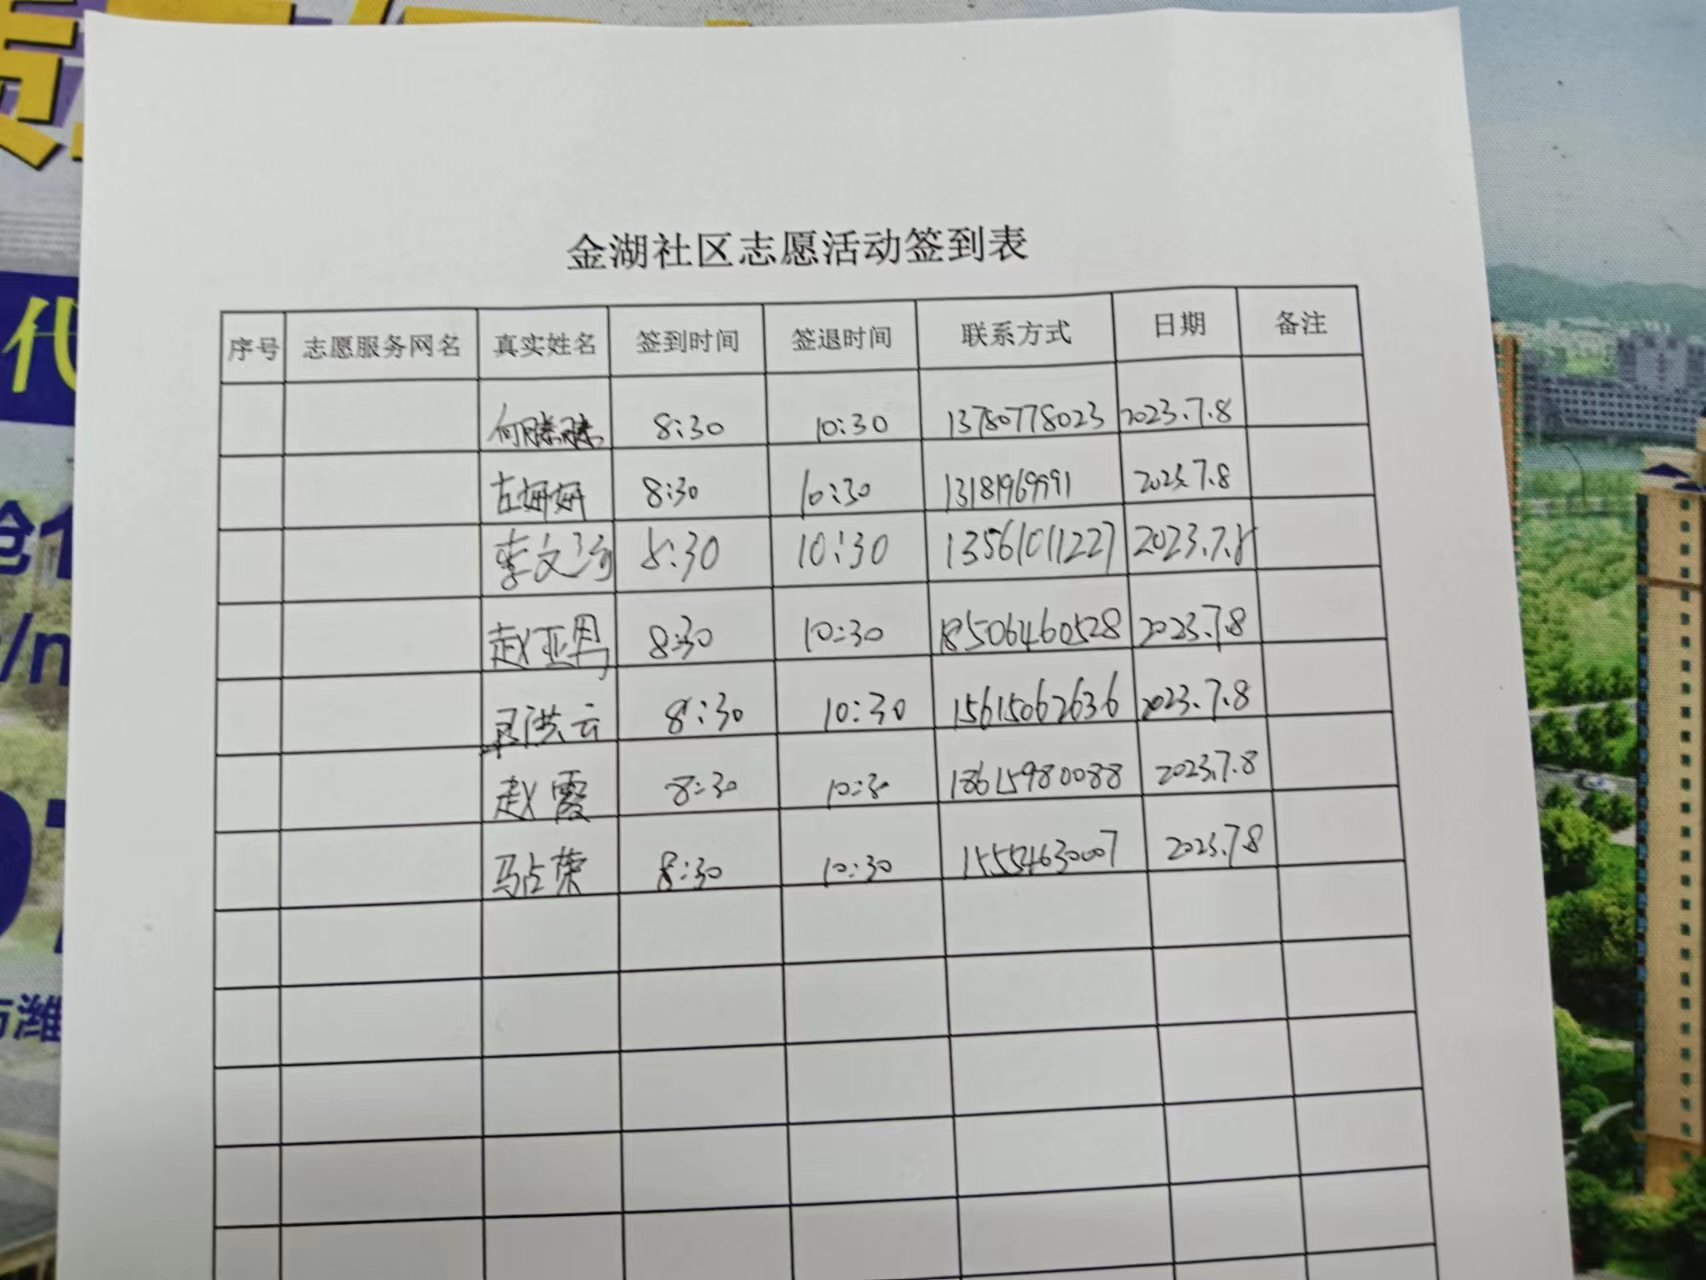 金湖社区志愿活动签到表
序号 志愿服务网名 真实姓名 签到时间 签退时间 联系方式 日期 备注
何腾腾 8:30 10:30 13780778023 2023.7.8
左妍妍 8:30 10:30 13181969991 2023.7.8
李文 8:30 10:30 13561011227 2023.7.8
赵亚男 8:30 10:30 18506460528 2023.7.8
洪云 8:30 10:30 15615062636 2023.7.8
赵霞 8:30 10:30 18615980088 2023.7.8
马占荣 8:30 10:30 15554630007 2023.7.8
代